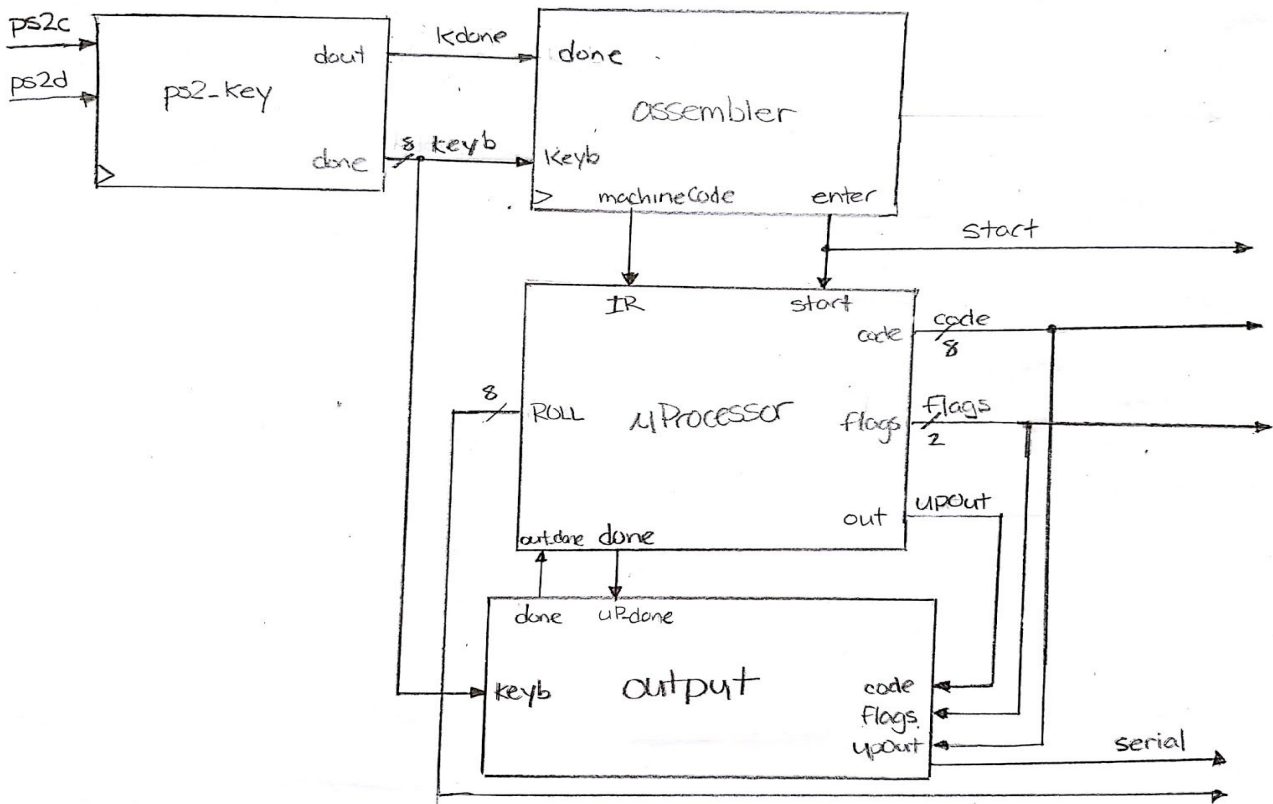 ps2c
ps2d
ps2_key
dout
done
Kdone
8 keyb
done
assembler
Keyb
machineCode enter
start
IR start
code
code
8
8
ROLL
μProcessor
flags
flags
2
out
upOut
out_done done
done uP_done
keyb
output
code
flags
upOut
serial